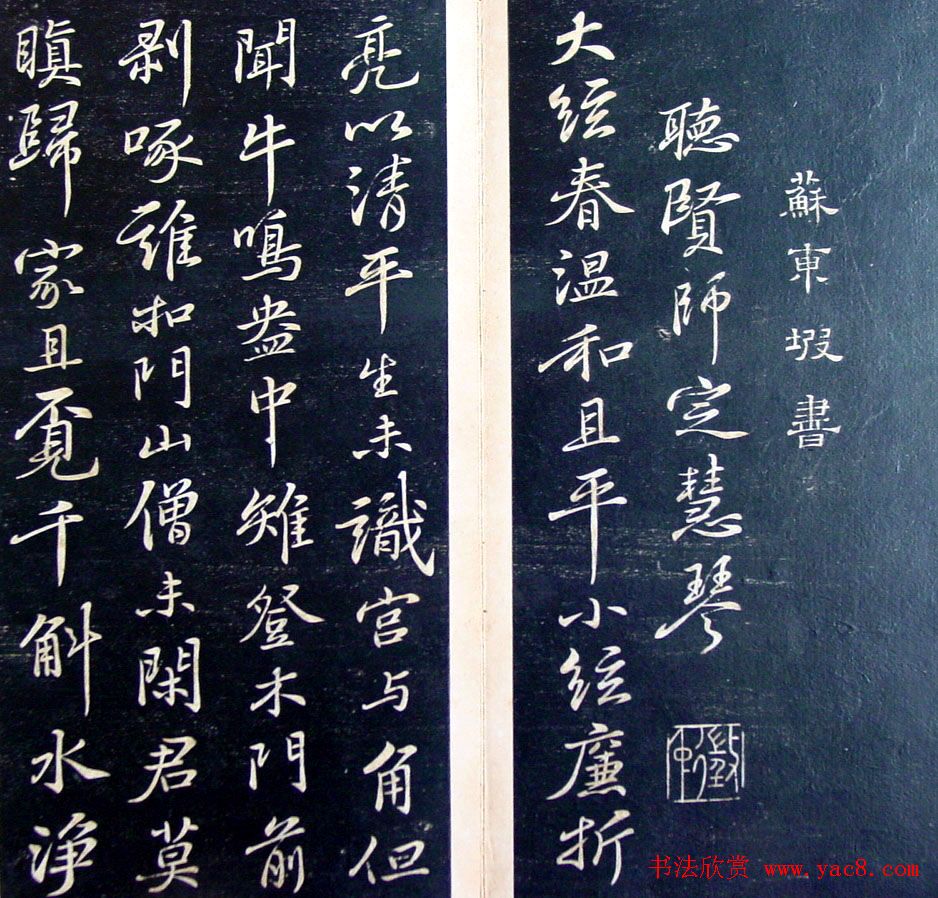 蘇東坡書
聽賢師定慧琴
大絃春温和且平小絃廉折
亮以清平生未識宫与角但
聞牛鳴盎中雉登木門前
剥啄誰扣門山僧未閑君莫
瞋歸家且覓千斛水淨
书法欣赏 www.yac8.com